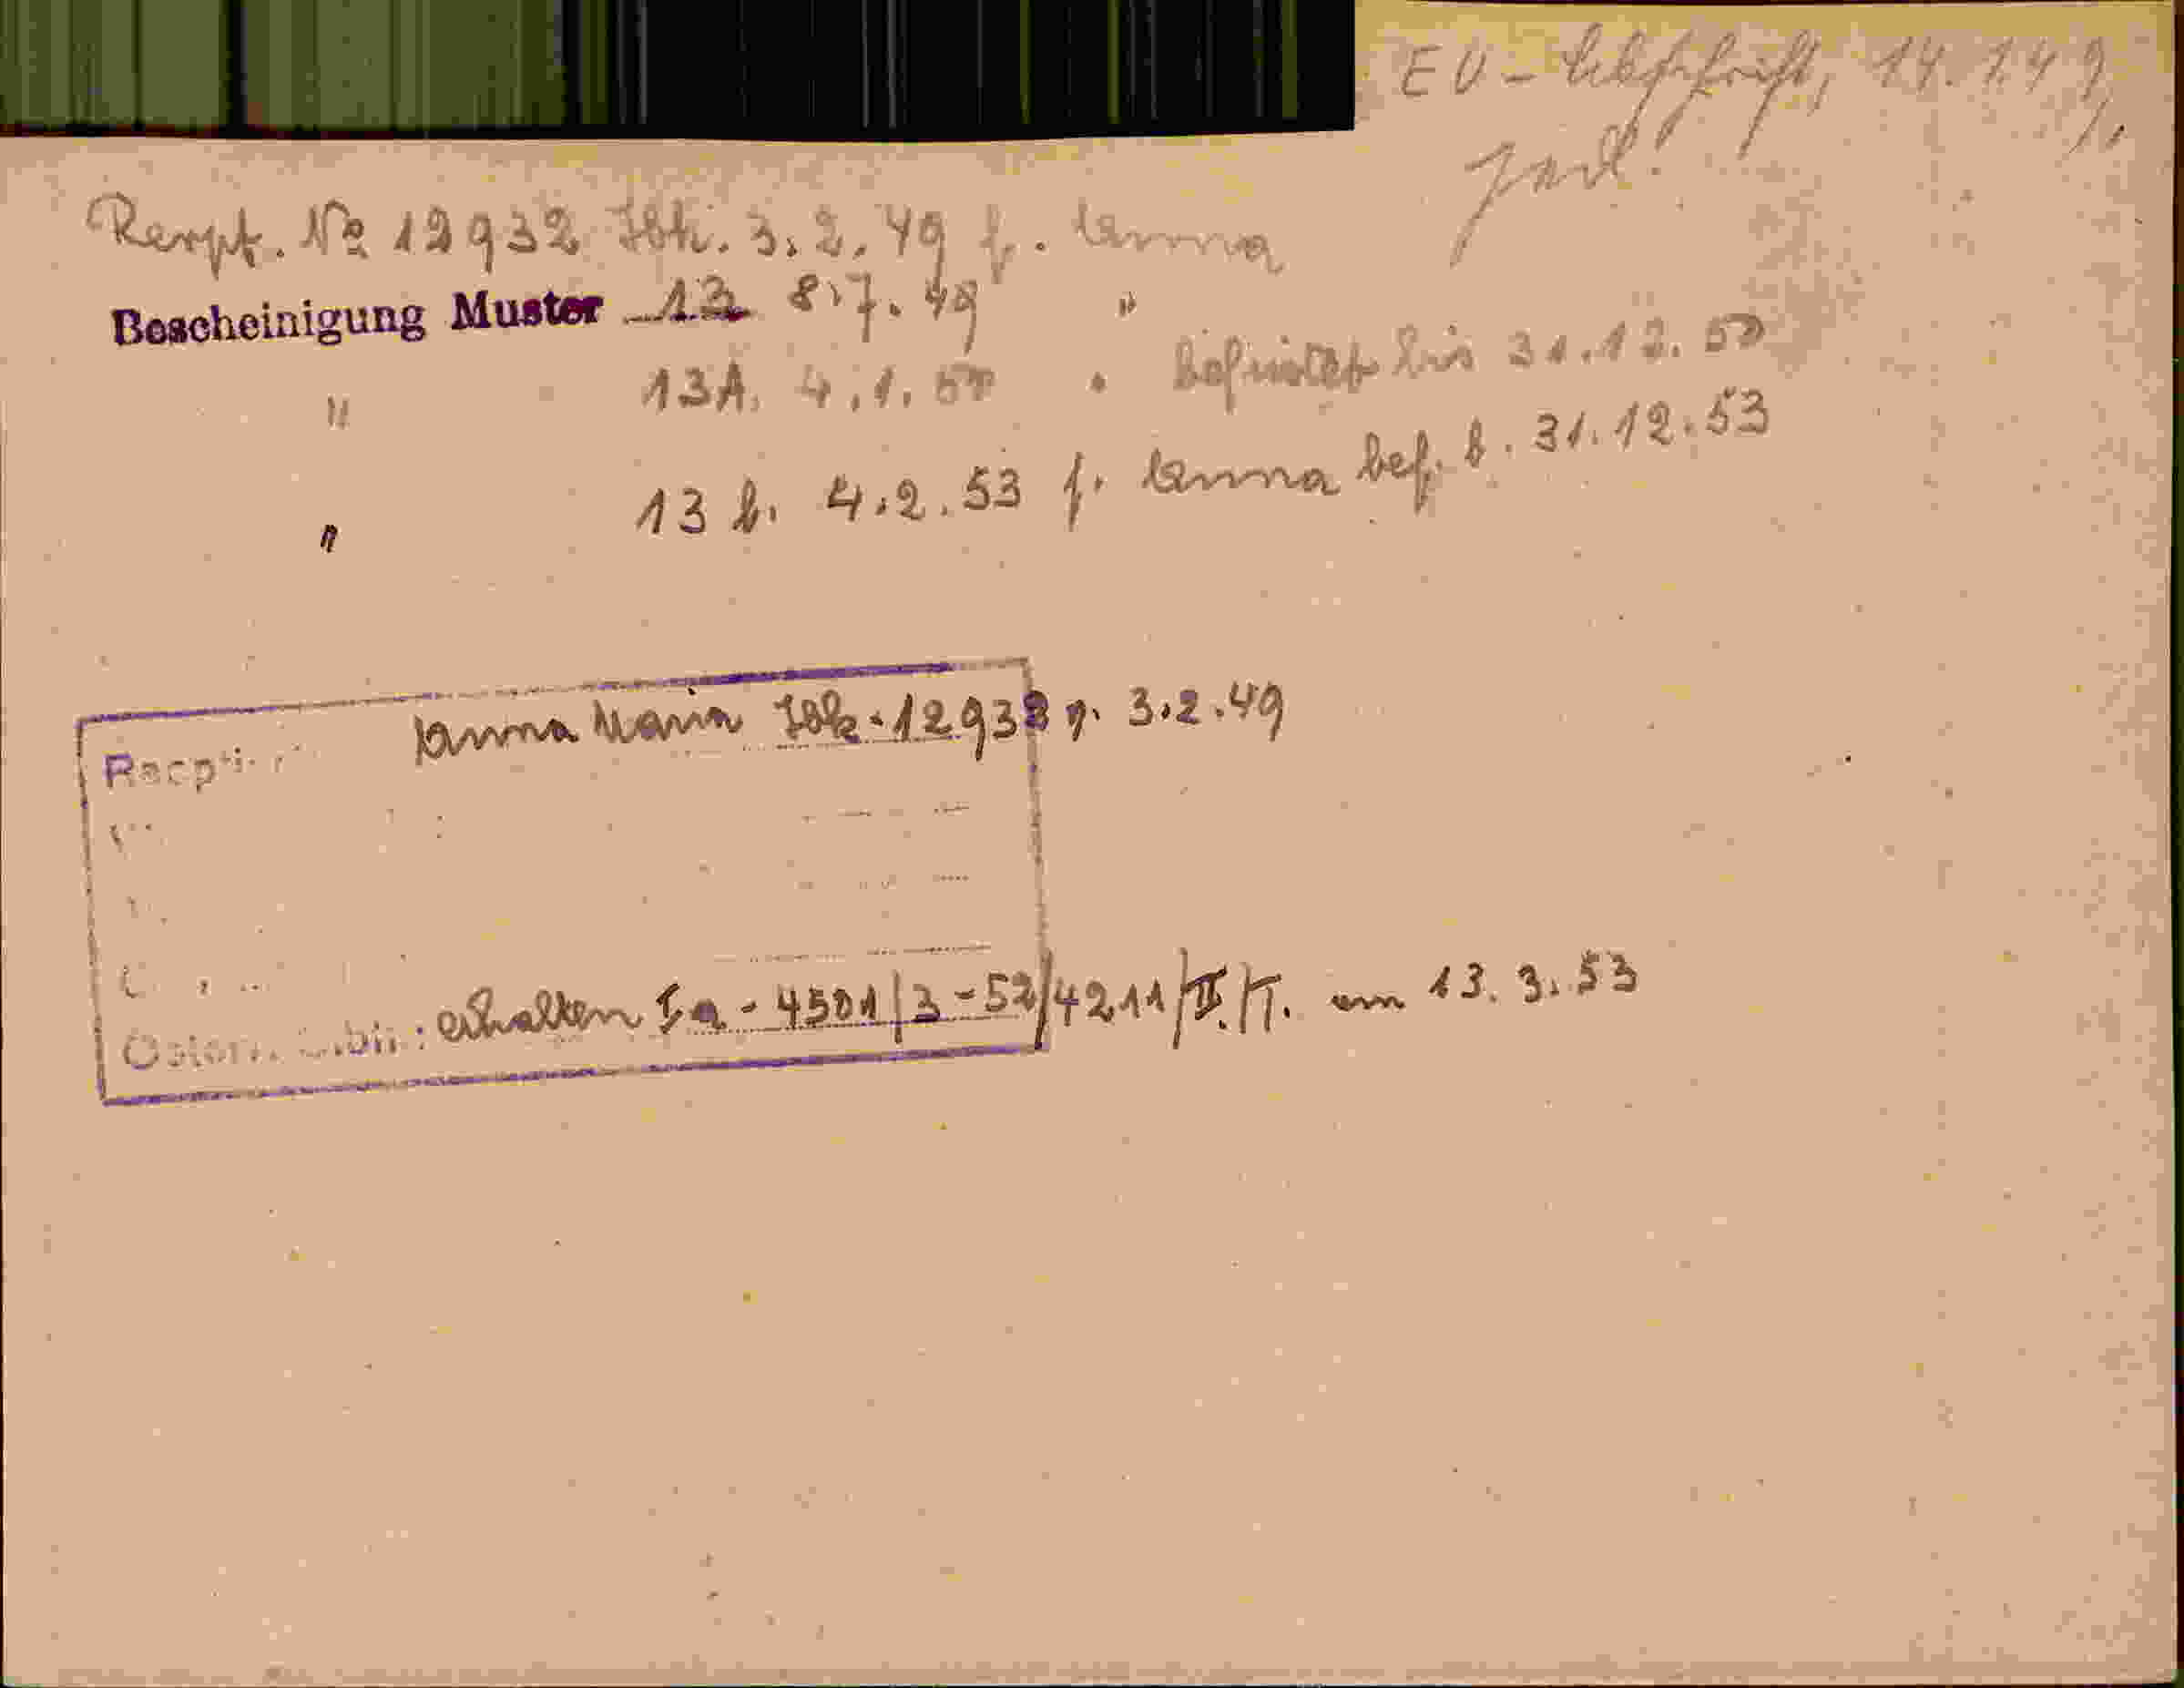 EV - Abschrift, 14.1.49
Rerpt. № 12932 Ibk. 3.2.49 f. Anna
Bescheinigung Muster 13 8.7.49 "
" 13A. 4.1.50 " befristet bis 31.12.50
" 13 b. 4.2.53 f. Anna bef. b. 31.12.53
Anna Maria Ibk. 12932 v. 3.2.49
erhalten Ia - 4501/3-52/4211/II./T. am 13.3.53